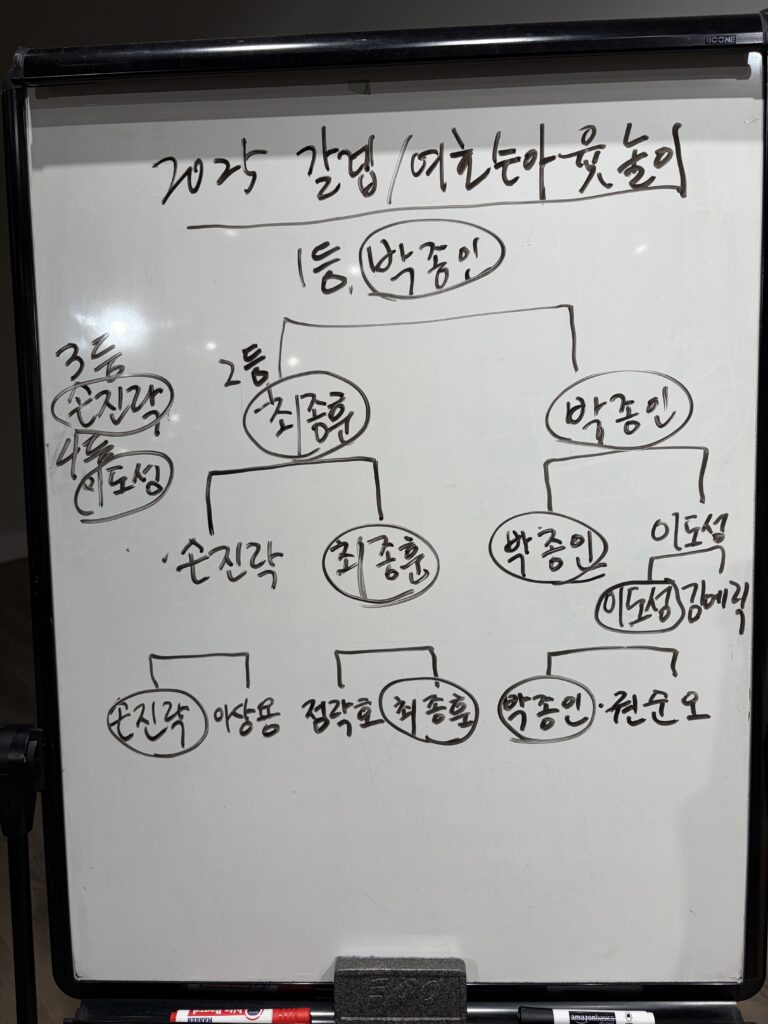 BOONE
2025 갈렙/여호수아 윷놀이
1등. 박종인
3등
손진락
4등
이도성
2등
최종훈
박종인
손진락 최종훈 박종인 이도성
이도성 김에릭
손진락 이상용 정락호 최종훈 박종인 권순오
MARKER
amazonbasics